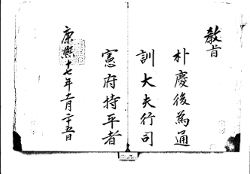 敎旨
朴慶後為通
訓大夫行司
憲府持平者
康熙十七年十二月二十五日